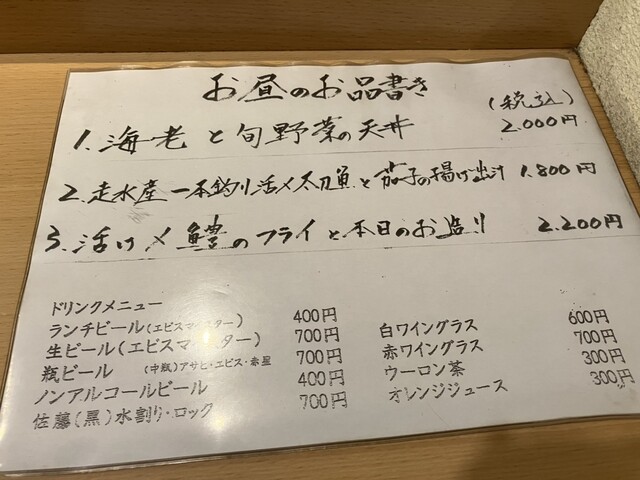 お昼のお品書き
(税込)
1. 海老と旬野菜の天丼 2.000円
2. 走水産一本釣り活〆太刀魚と茄子の揚げ出汁 1.800円
3. 活け〆鱧のフライと本日のお造り 2.200円
ドリンクメニュー
ランチビール(エビスマスター) 400円
生ビール(エビスマスター) 700円
瓶ビール (中瓶)アサヒ・エビス・赤星 700円
ノンアルコールビール 400円
佐藤(黒)水割り・ロック 700円
白ワイングラス 600円
赤ワイングラス 700円
ウーロン茶 300円
オレンジジュース 300円